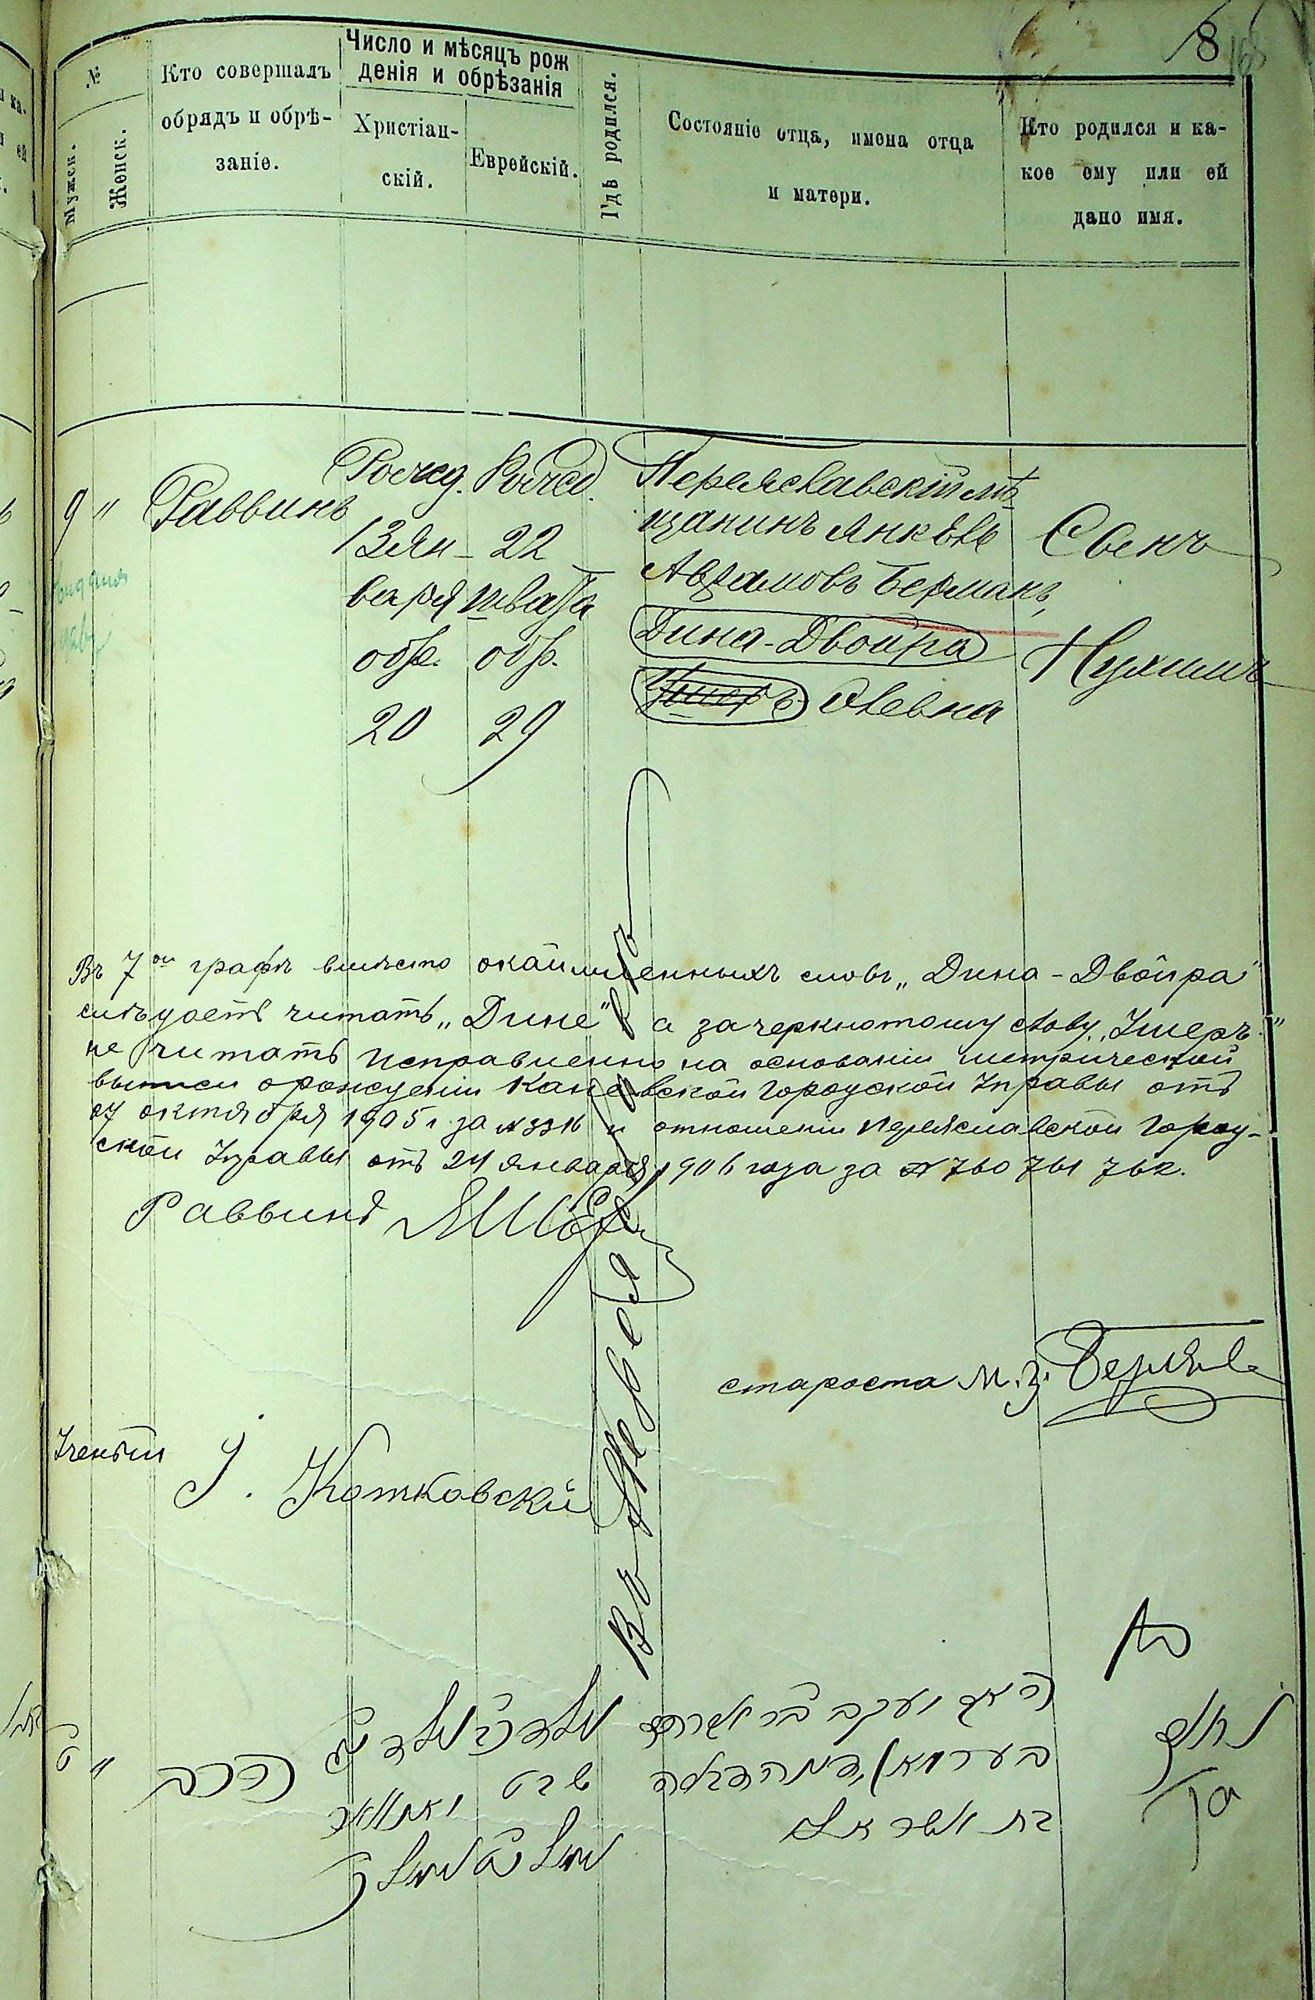 8
168
№
Мужск.
Женск.
Кто совершалъ
обрядъ и обрѣ-
заніе.
Число и мѣсяцъ рож
денія и обрѣзанія
Христіан-
скій.
Еврейскій.
Гдѣ родился.
Состояніе отца, имена отца
и матери.
Кто родился и ка-
кое ему или ей
дано имя.
9 "
Раввинъ
Рожд.
13 Ян-
варя
обр.
20
Рожд.
22
шва́та
обр.
29
Переяславскій мѣ-
щанинъ Янкевъ
Аврамовъ Берманъ,
Дина-Двойра
Ушеръ-Овевна
Сынъ
Нухимъ
Въ 7ой графѣ вмѣсто окаймленныхъ словъ „Дина-Двойра"
слѣдуетъ читать „Дине" а зачеркнотому слову „Ушеръ-"
не читать Исправленно на основаніи метрической
выписи о рожденіи Каневской Городской Управы отъ
27 октября 1905 г за № 3316 и отношеніи Переяславской Город-
ской Управы отъ 24 января 1906 года за № 760 761 762.
Раввинъ
староста М. З.
Ученый І. Котковскій
ט "
הרב
האב יעקב בר אברהם
בערמאן,
בת אשר
בן
נחום